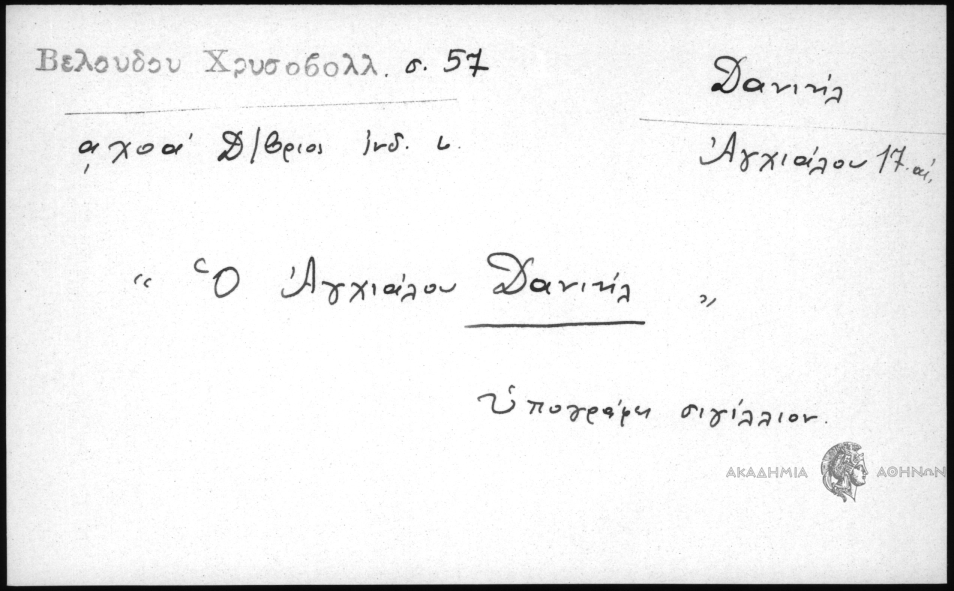 Βελουδου Χρυσοβολλ. σ. 57
Δανιήλ
͵αχοα΄ Δ/βριος ἰνδ. ι.
Ἀγχιάλου 17 αἰ.
“ Ὁ Ἀγχιάλου Δανιήλ „
ὑπογράφει σιγίλλιον.
ΑΚΑΔΗΜΙΑ ΑΘΗΝΩΝ